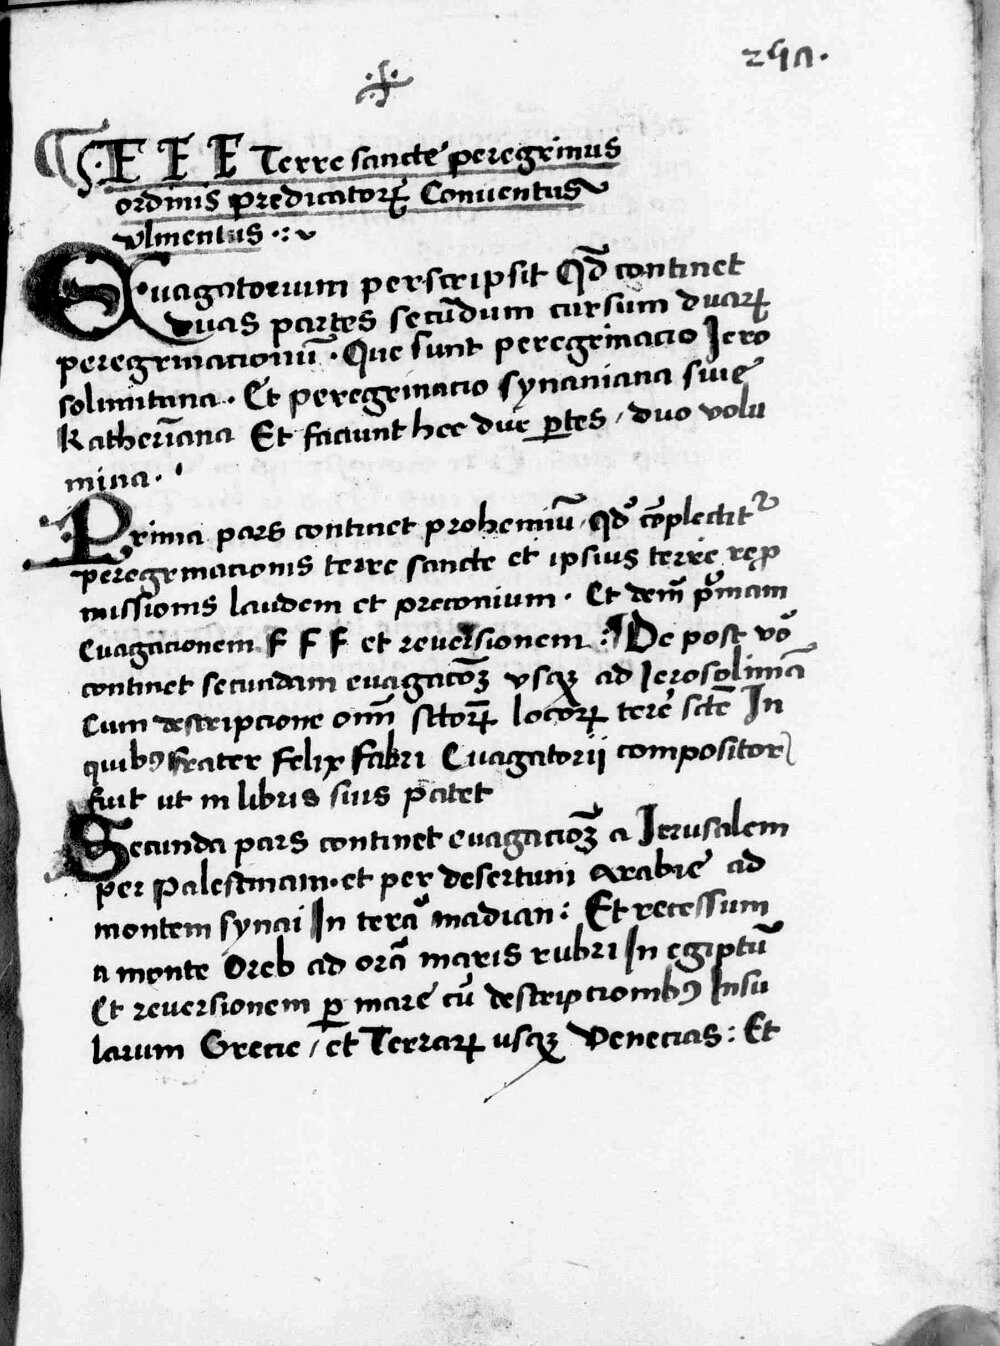 F F F Terre sancte peregrinus
ordinis predicatorꝝ Conuentus
vlmentus
Euagatorium perscripsit Qd̄ continet
duas partes secūdum cursum duarꝝ
peregrinacionū. Que sunt peregrinacio Jero
solimitana. Et peregrinacio synaniana siue
Katherīana Et faciunt hee due ꝑtes / duo volu
mina.
Prima pars continet prohemiū, qd̄ cōplectitr
peregrinacionis terre sancte et ipsius terre
missionis laudem et preconium. Et demū pͥmam
Euagacionem F F F et reuersionem: De post vo
continet secundam euagacōꝫ vsqꝫ ad Jerosolimā
Cum descriptione oīm sctorꝝ locorꝝ terre scte In
quibꝰ frater Felix Fabri Euagatorii compositor
fuit ut in libris suis patet
Secunda pars continet euagacioꝫ a Jerusalem
per Palestinam. et per desertum Arabie ad
montem synai In terā madian: Et recessum
a monte Oreb ad orā maris rubri In egiptū
Et reuersionem ꝑ mare cū descriptionibꝰ Insu
larum Grecie / et Terrarꝝ usqꝫ Venecias: Et